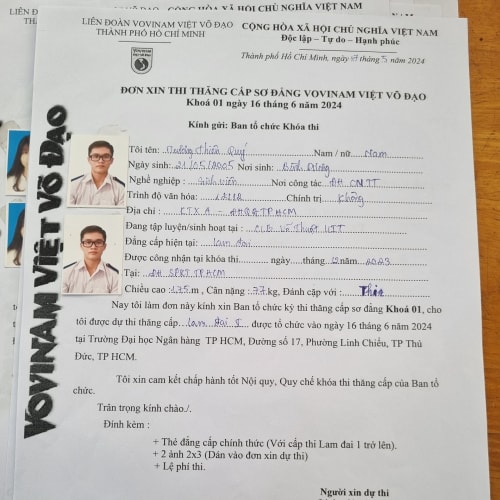 LIÊN ĐOÀN VOVINAM VIỆT VÕ ĐẠO
THÀNH PHỐ HỒ CHÍ MINH
CỘNG HÒA XÃ HỘI CHỦ NGHĨA VIỆT NAM
Độc lập – Tự do – Hạnh phúc
Thành phố Hồ Chí Minh, ngày 17 tháng 5 năm 2024
ĐƠN XIN THI THĂNG CẤP SƠ ĐẲNG VOVINAM VIỆT VÕ ĐẠO
Khoá 01 ngày 16 tháng 6 năm 2024
Kính gửi: Ban tổ chức Khóa thi
VOVINAM VIỆT VÕ ĐẠO
Tôi tên: Trương Thiên Quý Nam / nữ Nam
Ngày sinh: 21/05/2005 Nơi sinh: Bình Dương
Nghề nghiệp : Sinh viên Nơi công tác ĐH CNTT
Trình độ văn hóa: 12/12 Chính trị Không
Địa chỉ : KTX A - ĐHQG TP HCM
Đang tập luyện/sinh hoạt tại : CLB Võ Thuật UIT
Đẳng cấp hiện tại: Lam đai
Được công nhận tại khóa thi ngày tháng năm 2023
Tại: ĐH SPKT TP HCM
Chiều cao : 1,75 m , Cân nặng : 77 kg, Đánh cặp với :
Nay tôi làm đơn này kính xin Ban tổ chức kỳ thi thăng cấp sơ đẳng Khoá 01, cho
tôi được dự thi thăng cấp Lam đai I được tổ chức vào ngày 16 tháng 6 năm 2024
tại Trường Đại học Ngân hàng TP HCM, Đường số 17, Phường Linh Chiểu, TP Thủ
Đức, TP HCM.
Tôi xin cam kết chấp hành tốt Nội quy, Quy chế khóa thi thăng cấp của Ban tổ
chức.
Trân trọng kính chào./.
Đính kèm :
+ Thẻ đẳng cấp chính thức (Với cấp thi Lam đai 1 trở lên).
+ 2 ảnh 2x3 (Dán vào đơn xin dự thi)
+ Lệ phí thi.
Người xin dự thi